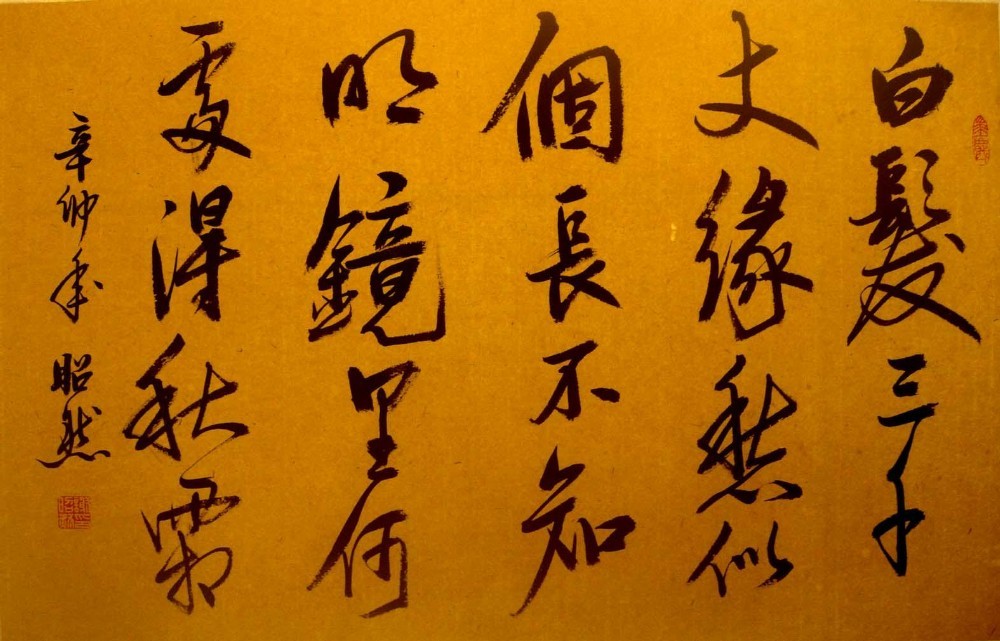 白髮三千
丈緣愁似
個長不知
明鏡里何
處得秋霜
辛卯年昭然